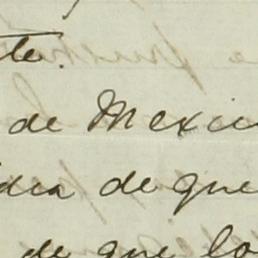 te.
de Mexic
idea de que
de que lo